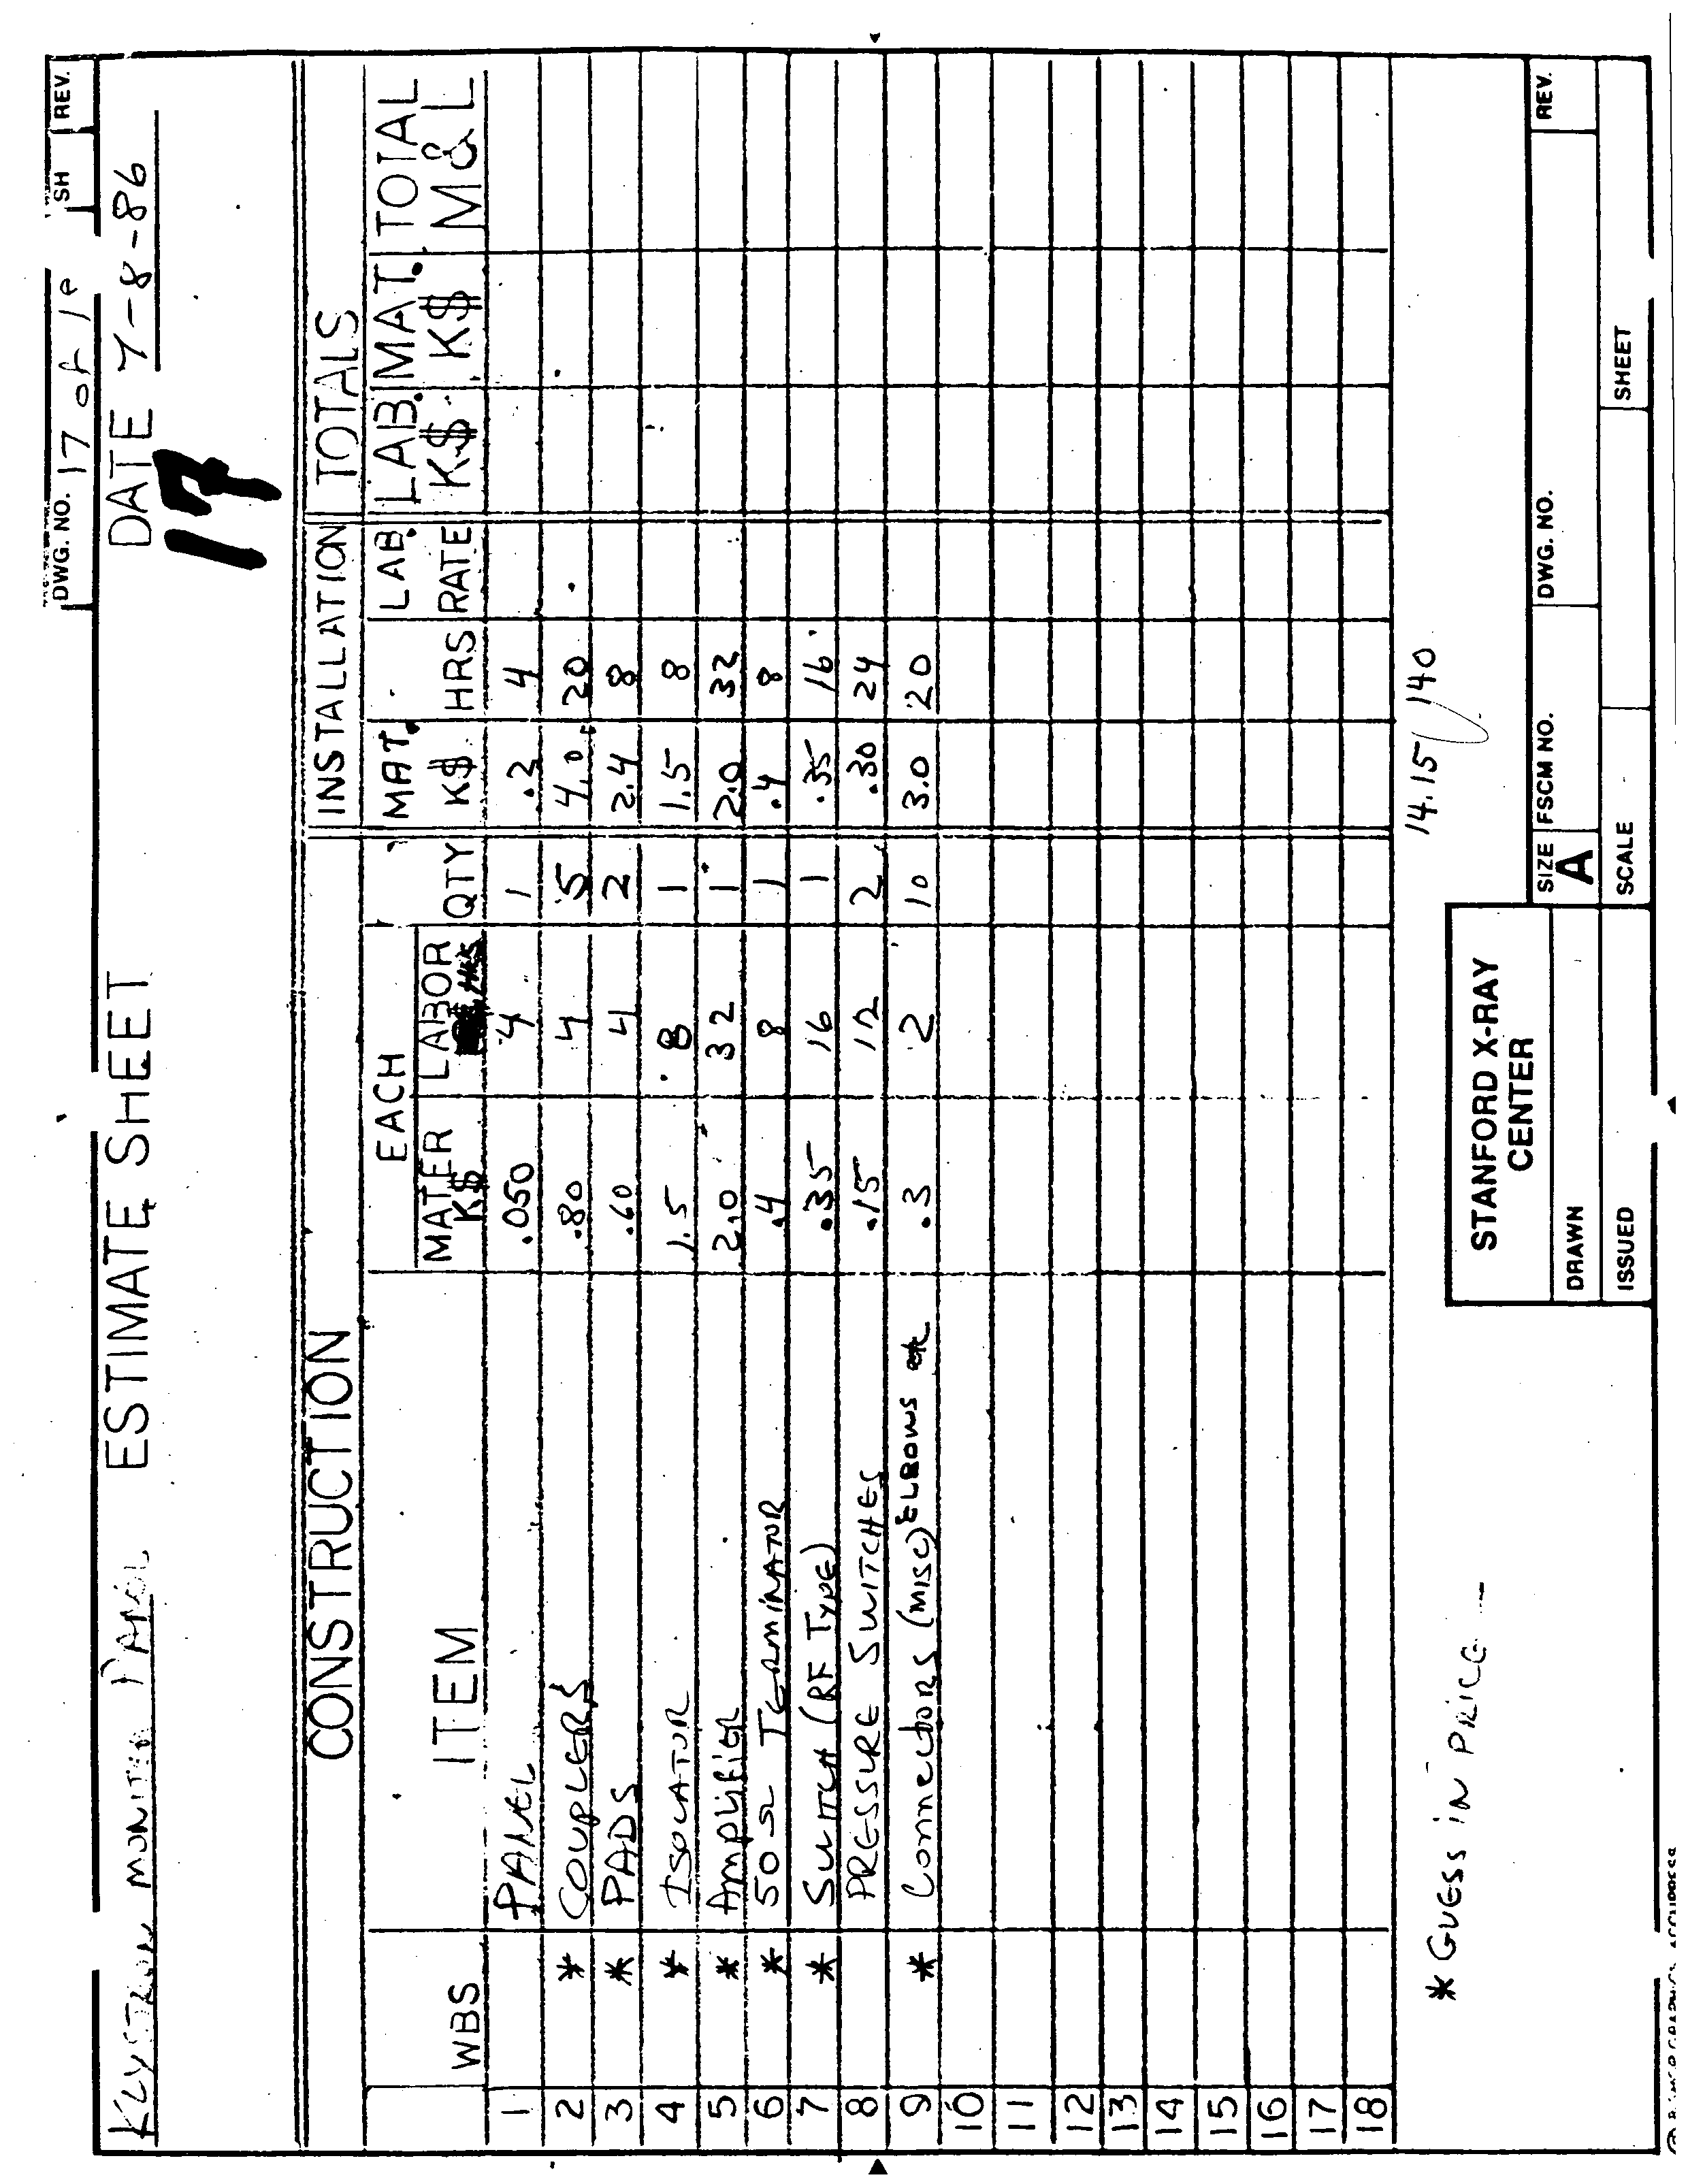 DWG. NO. 17 of 1e SH REV.
KLYSTRON MONITOR PANEL ESTIMATE SHEET DATE 7-8-86
17
CONSTRUCTION INSTALLATION TOTALS
EACH
WBS ITEM MATER K$ LABOR HRS QTY MAT. K$ HRS LAB. RATE LAB. K$ MAT. K$ TOTAL M&L
1 PANEL .050 4 1 .2 4
2 * COUPLERS .80 4 5 4.0 20
3 * PADS .60 4 2 2.4 8
4 * ISOLATOR 1.5 8 1 1.5 8
5 * Amplifier 2.0 32 1 2.0 32
6 * 50 Ω TERMINATOR .4 8 1 .4 8
7 * SWITCH (RF TYPE) .35 16 1 .35 16
8 PRESSURE SWITCHES .15 12 2 .30 24
9 * Connectors (MISC) ELBOWS etc .3 2 10 3.0 20
10
11
12
13
14
15
16
17
18
14.15 / 140
* GUESS IN PRICE —
STANFORD X-RAY
CENTER
SIZE A FSCM NO. DWG. NO. REV.
DRAWN
ISSUED SCALE SHEET